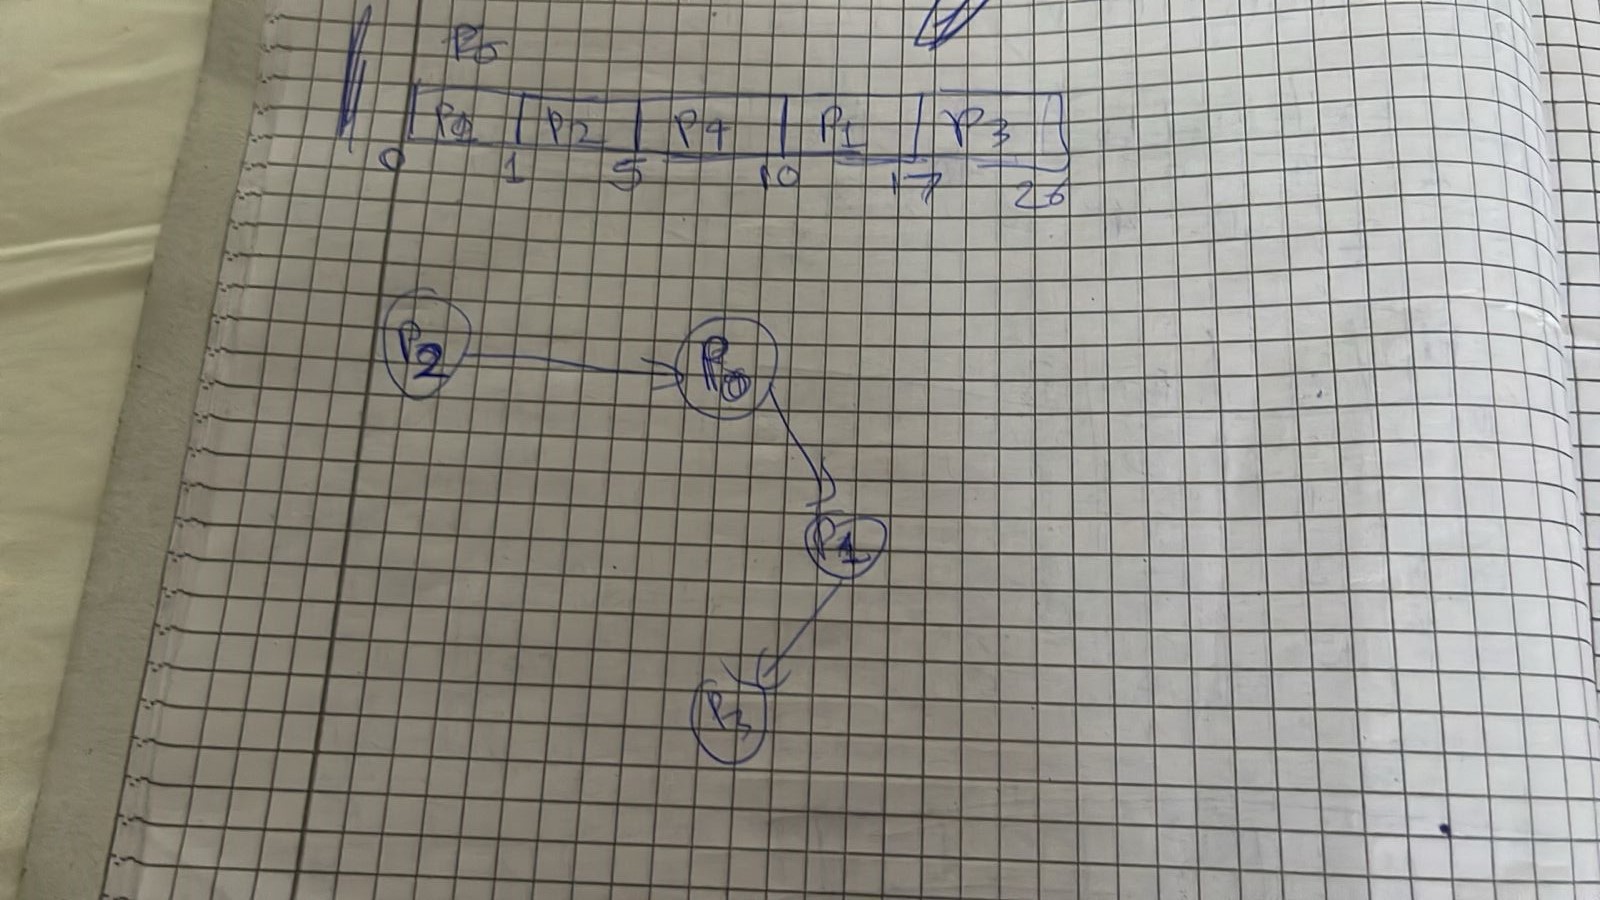 P0
P1 P2 P4 P1 P3
0 1 5 10 17 26
P2 P0
P1
P3